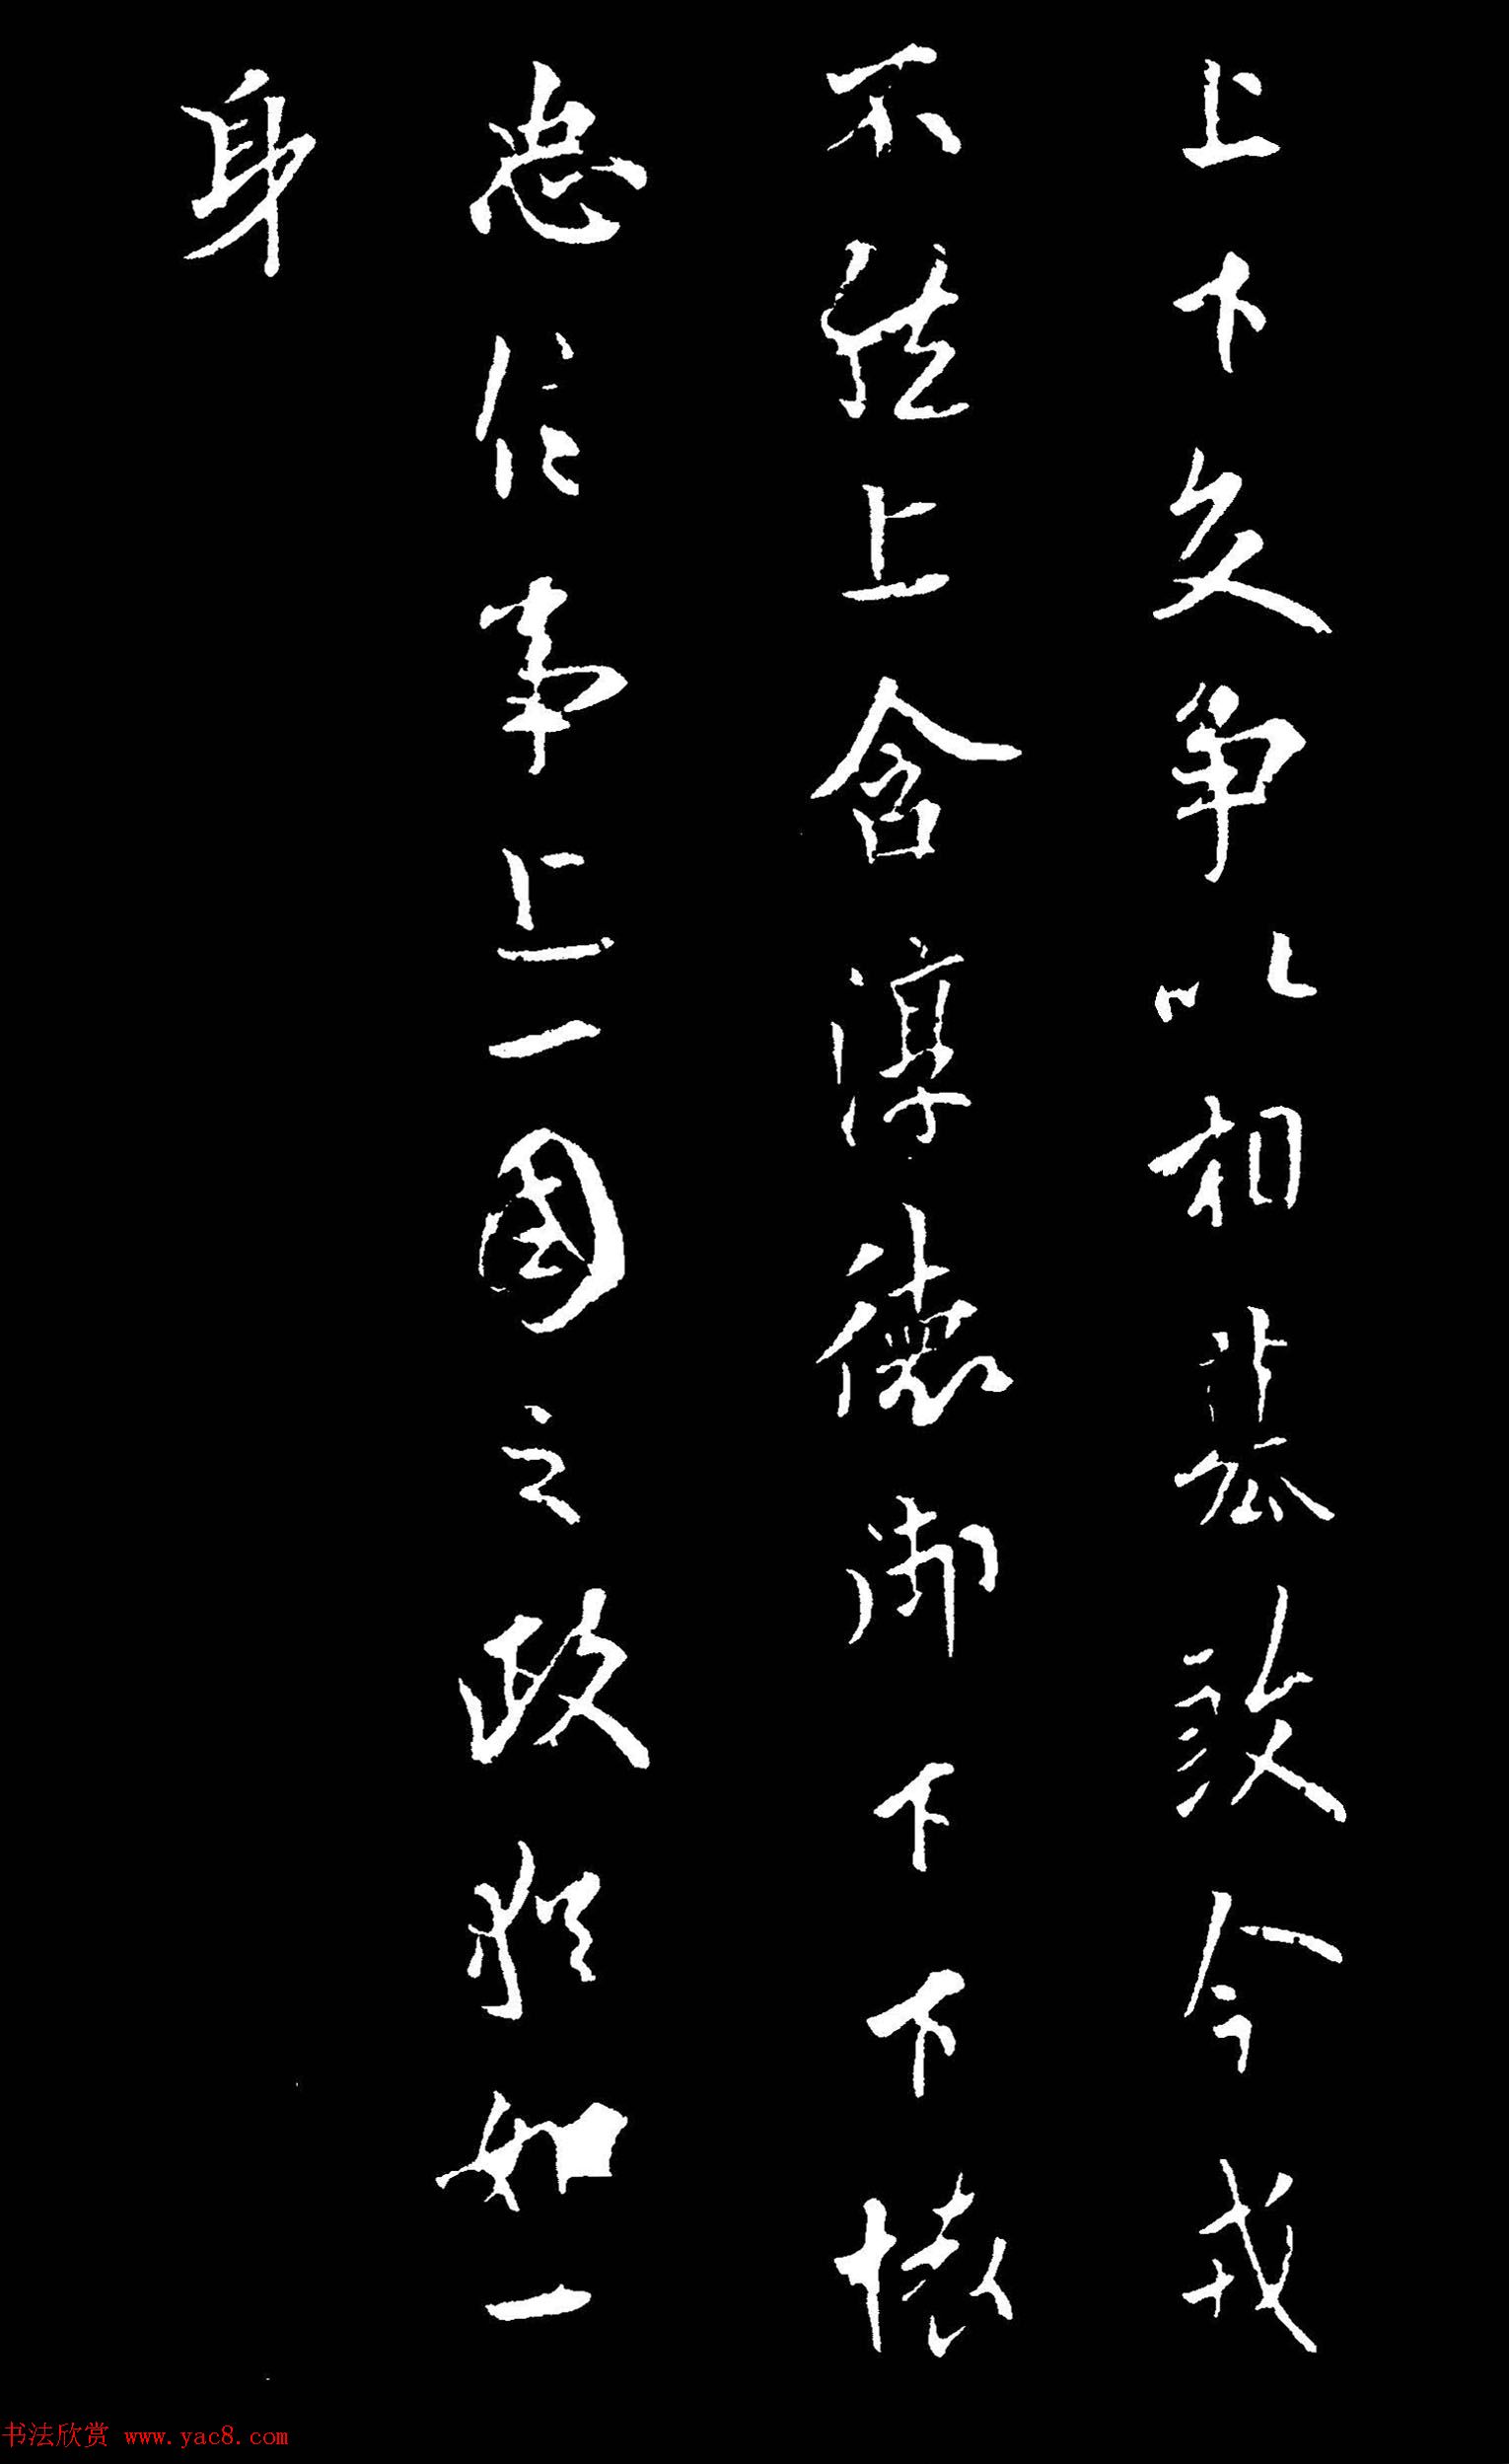 上下交争以相今戎
不上含淳德御下下懷
忠信事上一國之政猶如一
身
书法欣赏 www.yac8.com